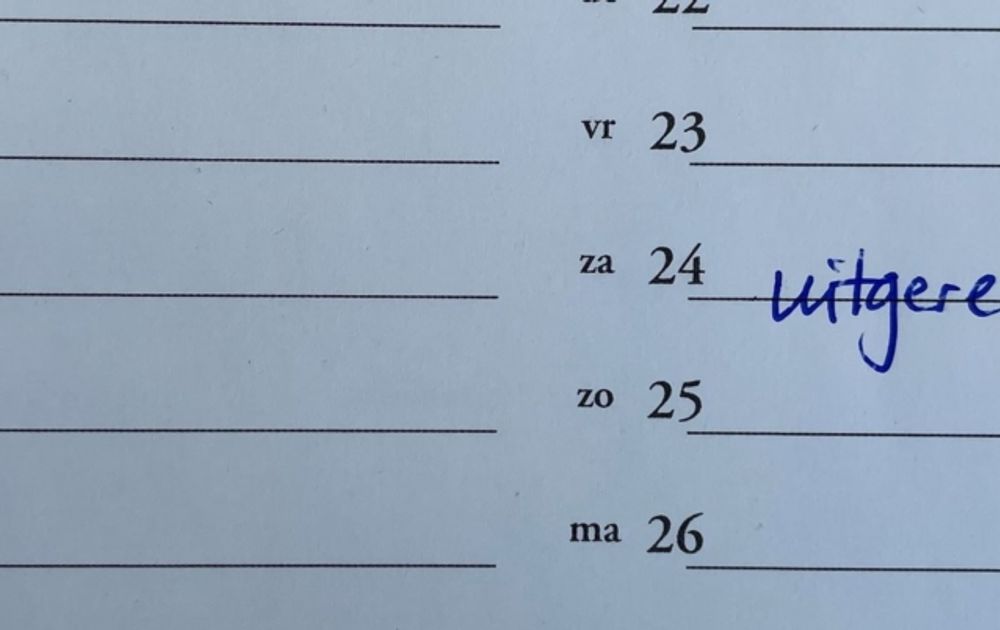 22
vr 23
za 24 uitgere
zo 25
ma 26